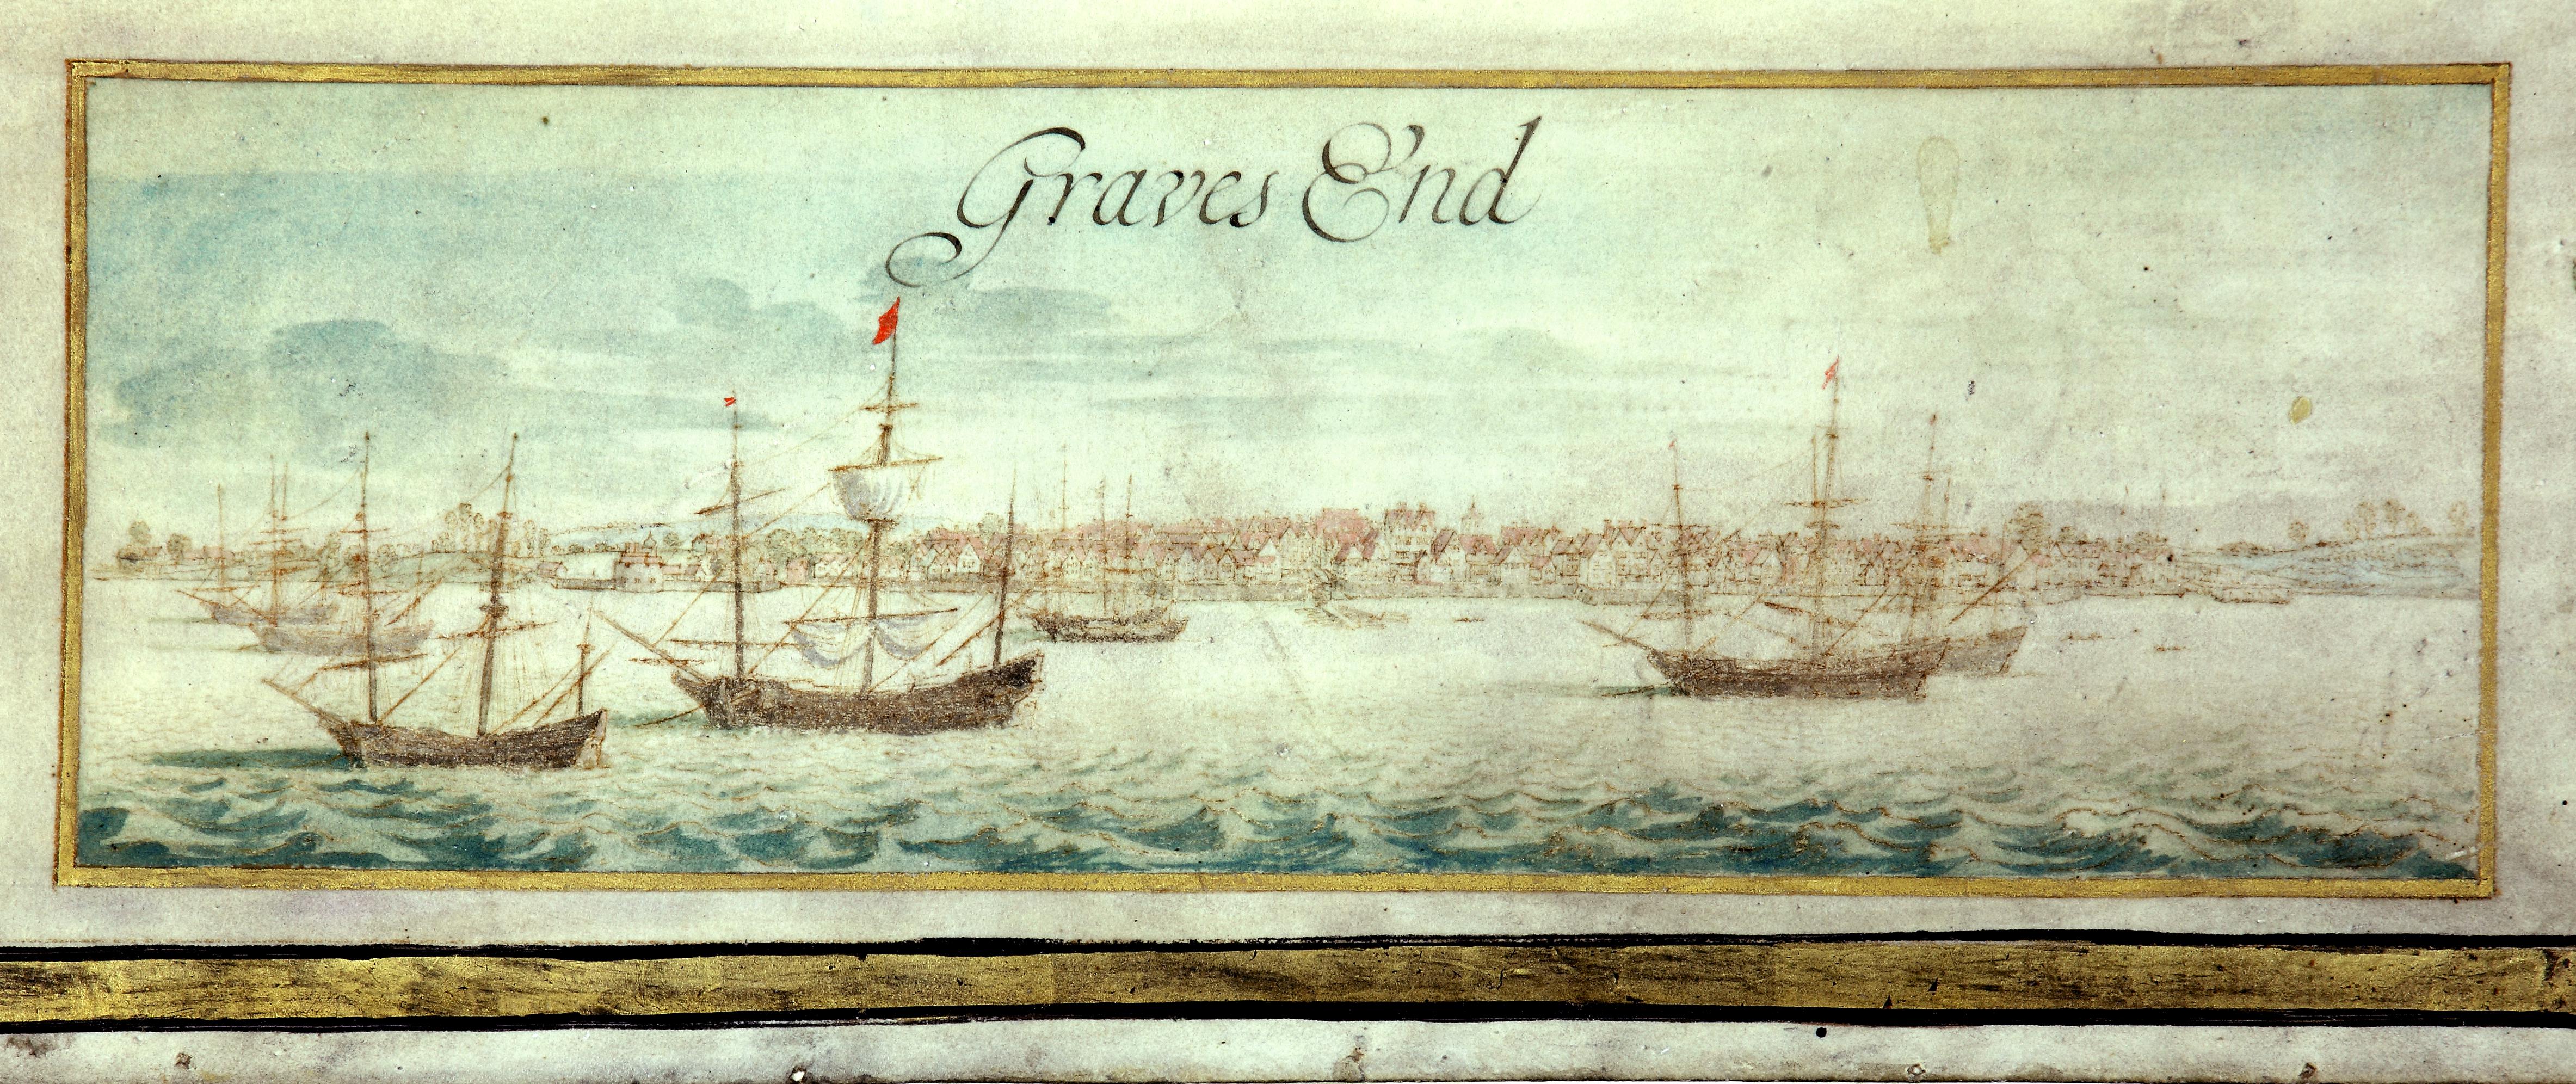 Graves End